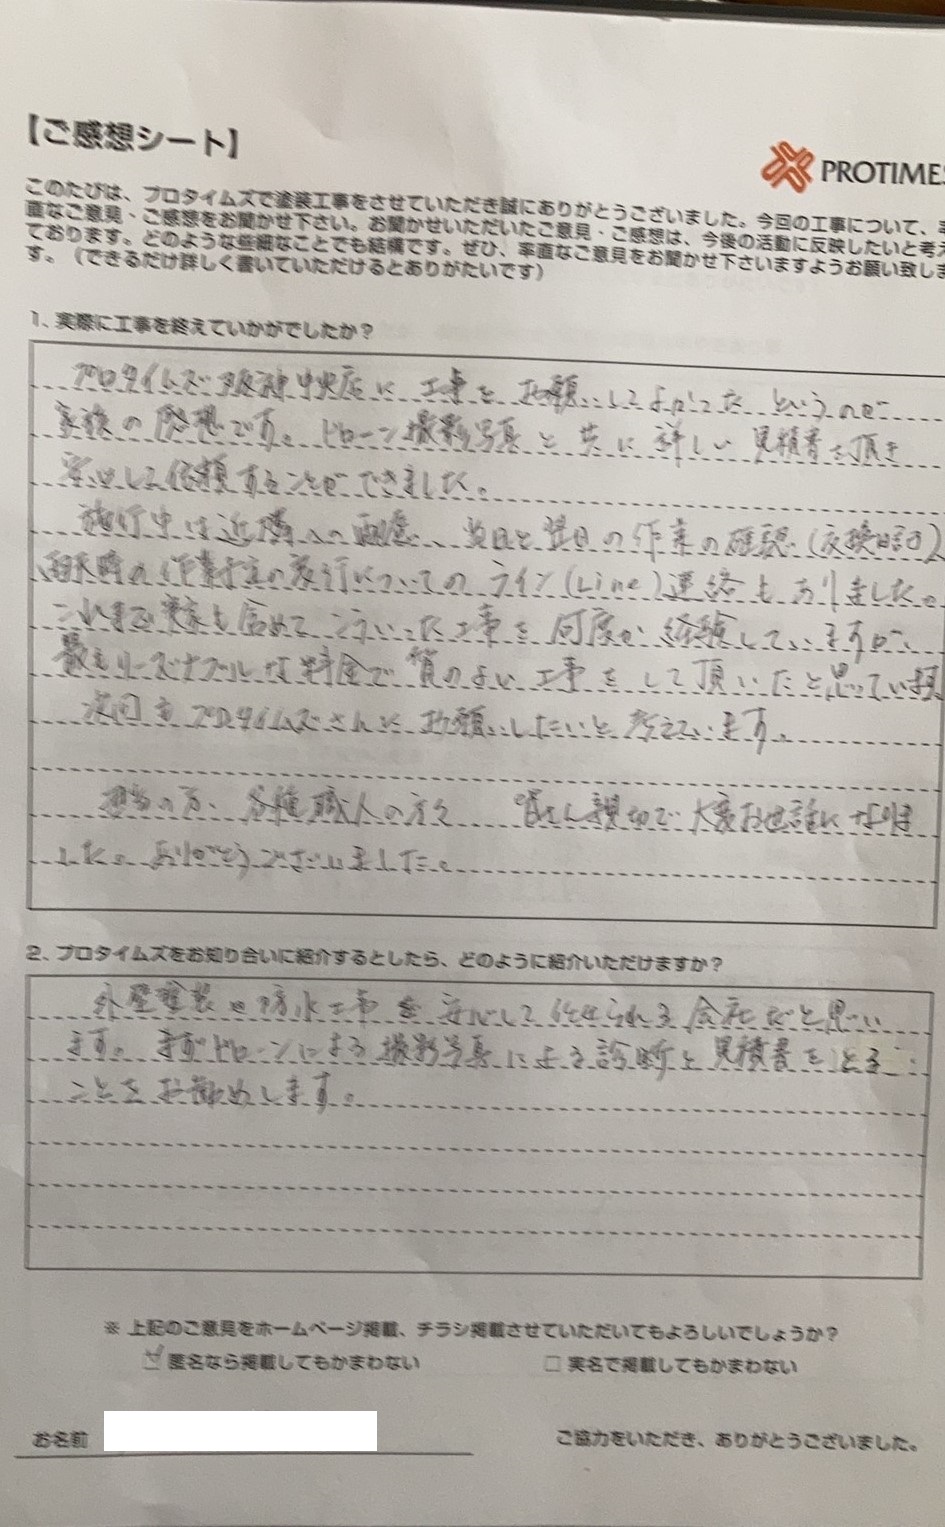 【ご感想シート】
PROTIMES
このたびは、プロタイムズで塗装工事をさせていただき誠にありがとうございました。今回の工事について、率
直なご意見・ご感想をお聞かせ下さい。お聞かせいただいたご意見・ご感想は、今後の活動に反映したいと考え
ております。どのような些細なことでも結構です。ぜひ、率直なご意見をお聞かせ下さいますようお願い致しま
す。（できるだけ詳しく書いていただけるとありがたいです）
1、実際に工事を終えていかがでしたか？
プロタイムズ阪神中央店に工事をお願いしてよかったというのが
家族の感想です。ドローン撮影写真と共に詳しい見積書を頂き
安心して依頼することができました。
施行中は近隣への配慮、当日と翌日の作業の確認（交換日記）
雨天時の作業予定の変行についてのライン（Line）連絡もありました。
これまで実家も含めてこういった工事を何度か経験していますが、
最もリーズナブルな料金で質のよい工事をして頂いたと思っています
次回もプロタイムズさんにお願いしたいと考えています。
担当の方、各種職人の方々 皆さん親切で大変お世話になりま
した。ありがとうございました。
2、プロタイムズをお知り合いに紹介するとしたら、どのように紹介いただけますか？
外壁塗装や防水工事を安心して任せられる会社だと思い
ます。まずドローンによる撮影写真による診断と見積書をとる
ことをお勧めします。
※ 上記のご意見をホームページ掲載、チラシ掲載させていただいてもよろしいでしょうか？
匿名なら掲載してもかまわない □ 実名で掲載してもかまわない
お名前
ご協力をいただき、ありがとうございました。